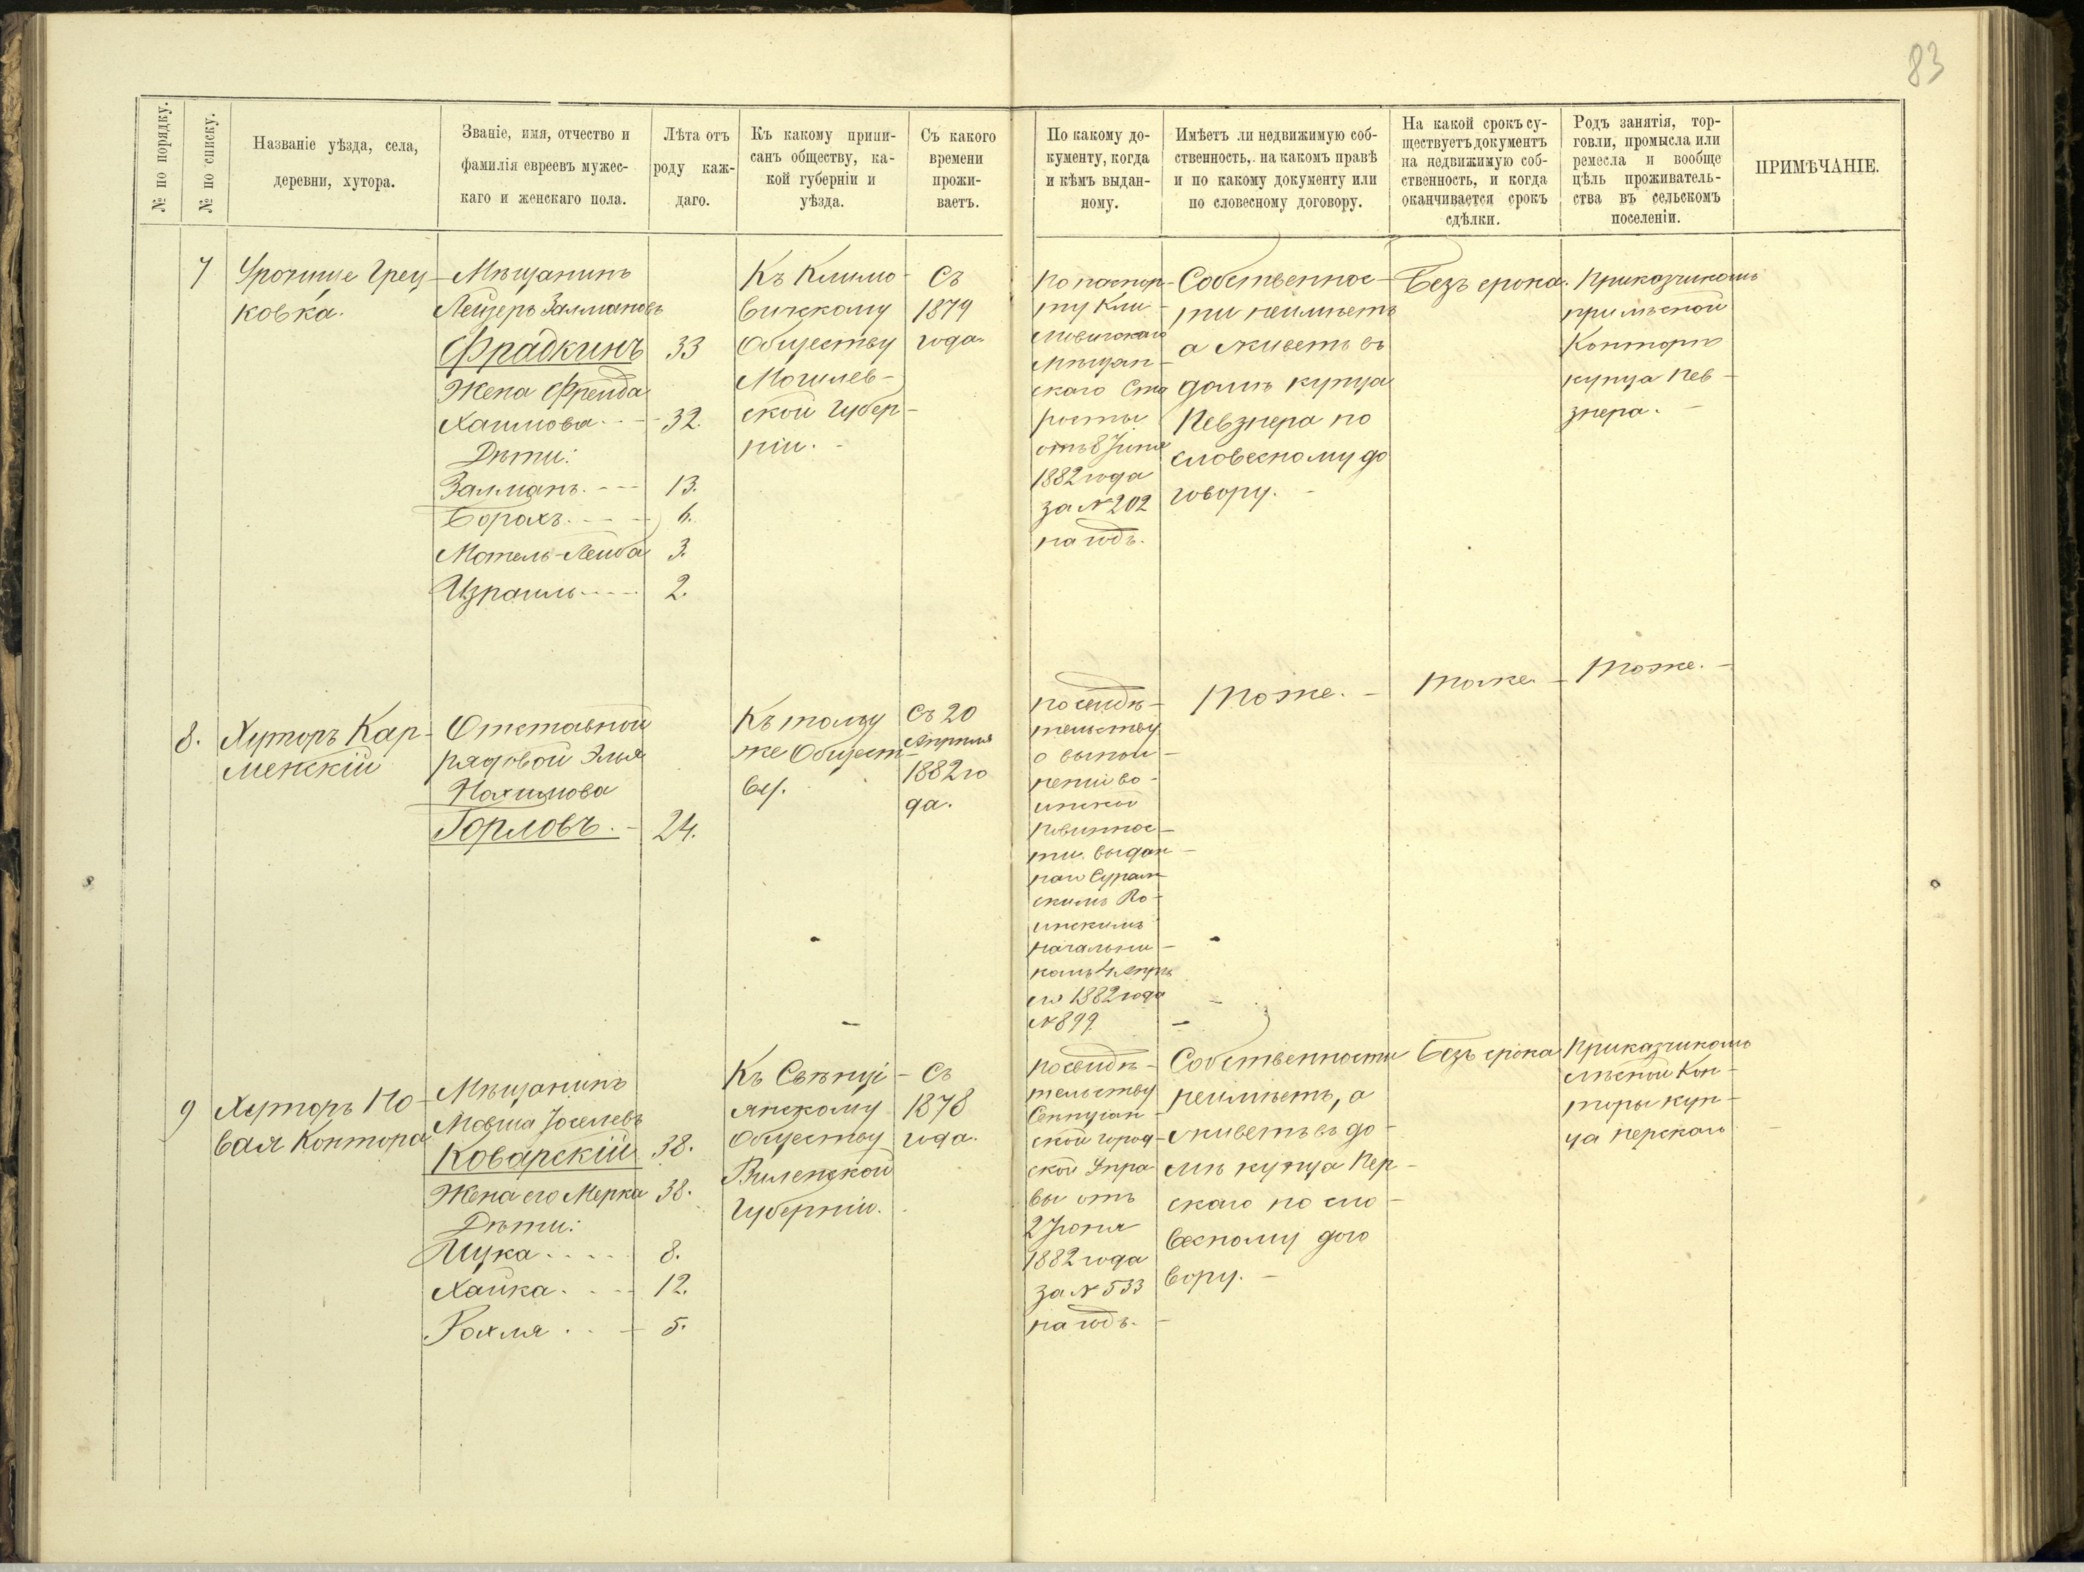 83
№ по порядку.
№ по списку.
Названіе уѣзда, села,
деревни, хутора.
Званіе, имя, отчество и
фамилія евреевъ мужес-
каго и женскаго пола.
Лѣта отъ
роду каж-
даго.
Къ какому припи-
санъ обществу, ка-
кой губерніи и
уѣзда.
Съ какого
времени
прожи-
ваетъ.
По какому до-
кументу, когда
и кѣмъ выдан-
ному.
Имѣетъ ли недвижимую соб-
ственность, на какомъ правѣ
и по какому документу или
по словесному договору.
На какой срокъ су-
ществуетъ документъ
на недвижимую соб-
ственность, и когда
оканчивается срокъ
сдѣлки.
Родъ занятія, тор-
говли, промысла или
ремесла и вообще
цѣль проживатель-
ства въ сельскомъ
поселеніи.
ПРИМѢЧАНІЕ.
7
Урочище Грец-
ковка.
Мѣщанинъ
Лейзеръ Залмановъ
Фрадкинъ 33
Жена Фрейда
Хаимова 32.
Дѣти:
Залманъ 13.
Борахъ 6.
Мотель-Лейба 3.
Израиль 2.
Къ Климо-
вичскому
Обществу
Могилев-
ской Губер-
ніи.
Съ
1879
года
По паспор-
ту Кли-
мовичскаго
Мѣщан-
скаго Ста
росты
отъ 8 Іюня
1882 года
за № 202
на годъ.
Собственнос-
ти неимѣетъ
а живетъ въ
домѣ купца
Певзнера по
словесному до
говору.
Безъ срока.
Приказчикомъ
при лѣсной
Конторѣ
купца Пев-
знера.
8.
Хуторъ Кар-
менскій
Отставной
рядовой Элья
Нахимова
Горловъ. 24.
Къ тому
же Общест-
ву.
Съ 20
Апрѣля
1882 го
да.
По свидѣ-
тельству
о выпол-
неніи во-
инской
повиннос-
ти, выдан-
наго Сураж-
скимъ Во-
инскимъ
Начальни-
комъ 4 Апрѣ
ля 1882 года
№ 899
Тоже.
Тоже
Тоже.
9
Хуторъ Но-
вая Контора
Мѣщанинъ
Мовша Іоселевъ
Коварскій 38.
Жена его Мерка 38.
Дѣти:
Ицка 8.
Хайка 12.
Рохля 5.
Къ Свѣнці-
янскому
Обществу
Виленской
Губерніи.
Съ
1878
года.
По свидѣ-
тельству
ской город-
ской Упра
вы отъ
2 Іюня
1882 года
за № 533
на годъ.
Собственности
неимѣетъ, а
живетъ въ до-
мѣ купца Пер-
скаго по сло-
весному дого
вору.
Безъ срока
Приказчикомъ
лѣсной Кон-
торы куп-
ца Перскаго